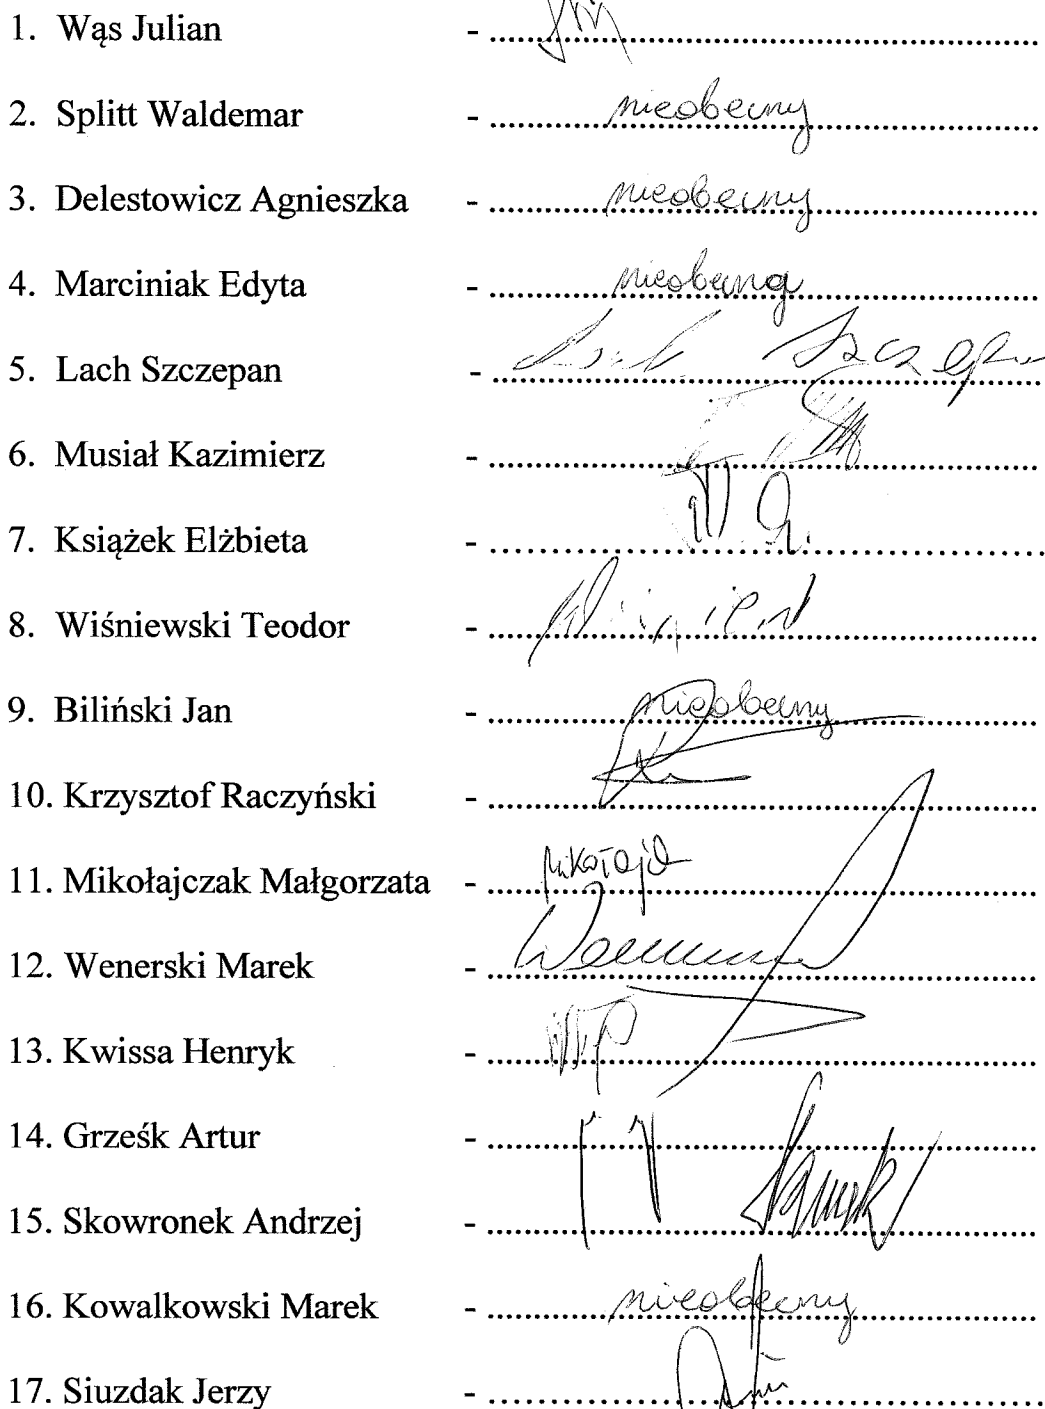 1. Wąs Julian - ........................
2. Splitt Waldemar - ........ nieobecny ........
3. Delestowicz Agnieszka - ........ nieobecny ........
4. Marciniak Edyta - ........ nieobecna ........
5. Lach Szczepan - Lach Szczepan
6. Musiał Kazimierz - ........................
7. Książek Elżbieta - ........................
8. Wiśniewski Teodor - ........................
9. Biliński Jan - ........ nieobecny ........
10. Krzysztof Raczyński - ........................
11. Mikołajczak Małgorzata - ........................
12. Wenerski Marek - ........................
13. Kwissa Henryk - ........................
14. Grześk Artur - ........................
15. Skowronek Andrzej - ........................
16. Kowalkowski Marek - ........ nieobecny ........
17. Siuzdak Jerzy - ........................